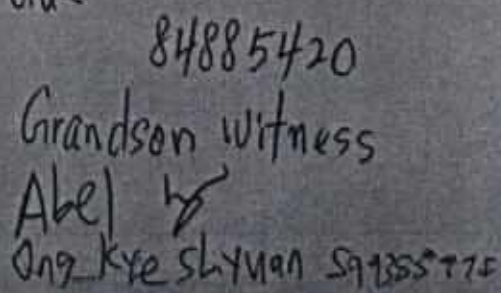 84885420
Grandson Witness
Abel
Ong Kye Shyuan